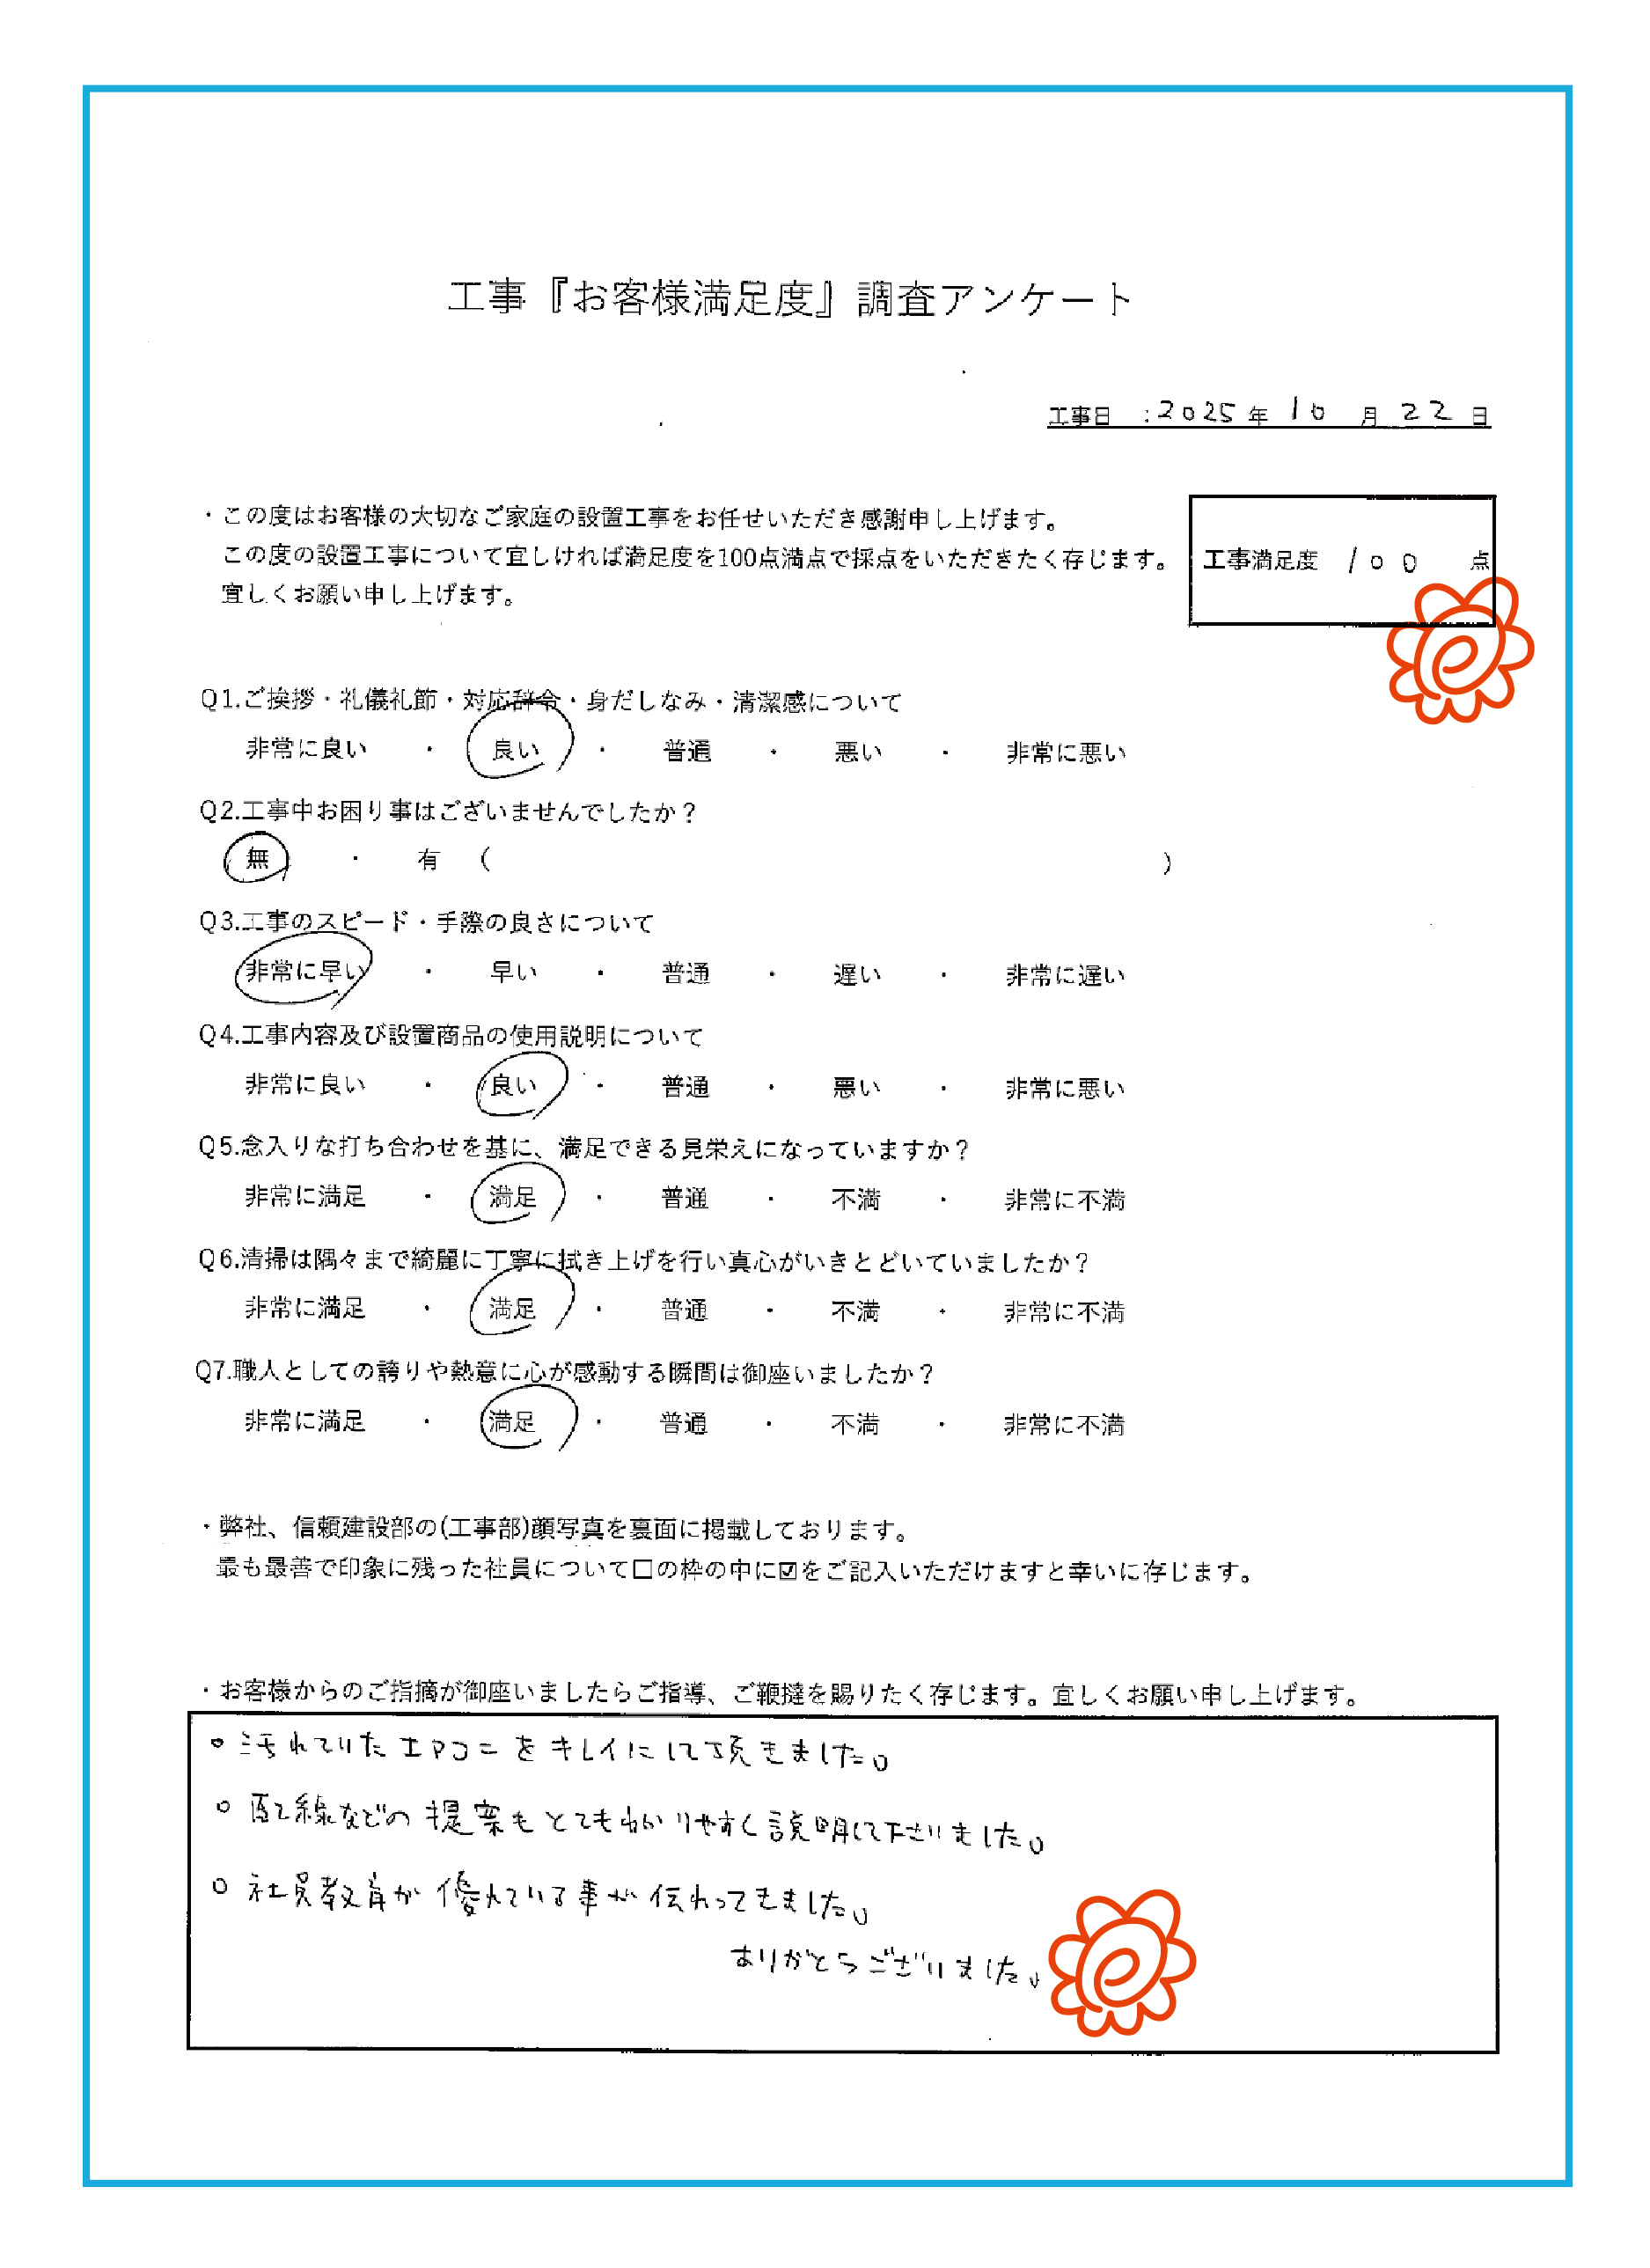 工事『お客様満足度』調査アンケート
工事日 :2025年 10 月 22 日
・この度はお客様の大切なご家庭の設置工事をお任せいただき感謝申し上げます。
この度の設置工事について宜しければ満足度を100点満点で採点をいただきたく存じます。
宜しくお願い申し上げます。
工事満足度 100 点
Q1.ご挨拶・礼儀礼節・対応辞令・身だしなみ・清潔感について
非常に良い ・ 良い ・ 普通 ・ 悪い ・ 非常に悪い
Q2.工事中お困り事はございませんでしたか？
無 ・ 有 （ ）
Q3.工事のスピード・手際の良さについて
非常に早い ・ 早い ・ 普通 ・ 遅い ・ 非常に遅い
Q4.工事内容及び設置商品の使用説明について
非常に良い ・ 良い ・ 普通 ・ 悪い ・ 非常に悪い
Q5.念入りな打ち合わせを基に、満足できる見栄えになっていますか？
非常に満足 ・ 満足 ・ 普通 ・ 不満 ・ 非常に不満
Q6.清掃は隅々まで綺麗に丁寧に拭き上げを行い真心がいきとどいていましたか？
非常に満足 ・ 満足 ・ 普通 ・ 不満 ・ 非常に不満
Q7.職人としての誇りや熱意に心が感動する瞬間は御座いましたか？
非常に満足 ・ 満足 ・ 普通 ・ 不満 ・ 非常に不満
・弊社、信頼建設部の(工事部)顔写真を裏面に掲載しております。
最も最善で印象に残った社員について□の枠の中に☑をご記入いただけますと幸いに存じます。
・お客様からのご指摘が御座いましたらご指導、ご鞭撻を賜りたく存じます。宜しくお願い申し上げます。
○ 汚れていたエアコンをキレイにして頂きました。
○ 配線などの提案もとてもわかりやすく説明して下さいました。
○ 社員教育が優れている事が伝わってきました。
ありがとうございました。